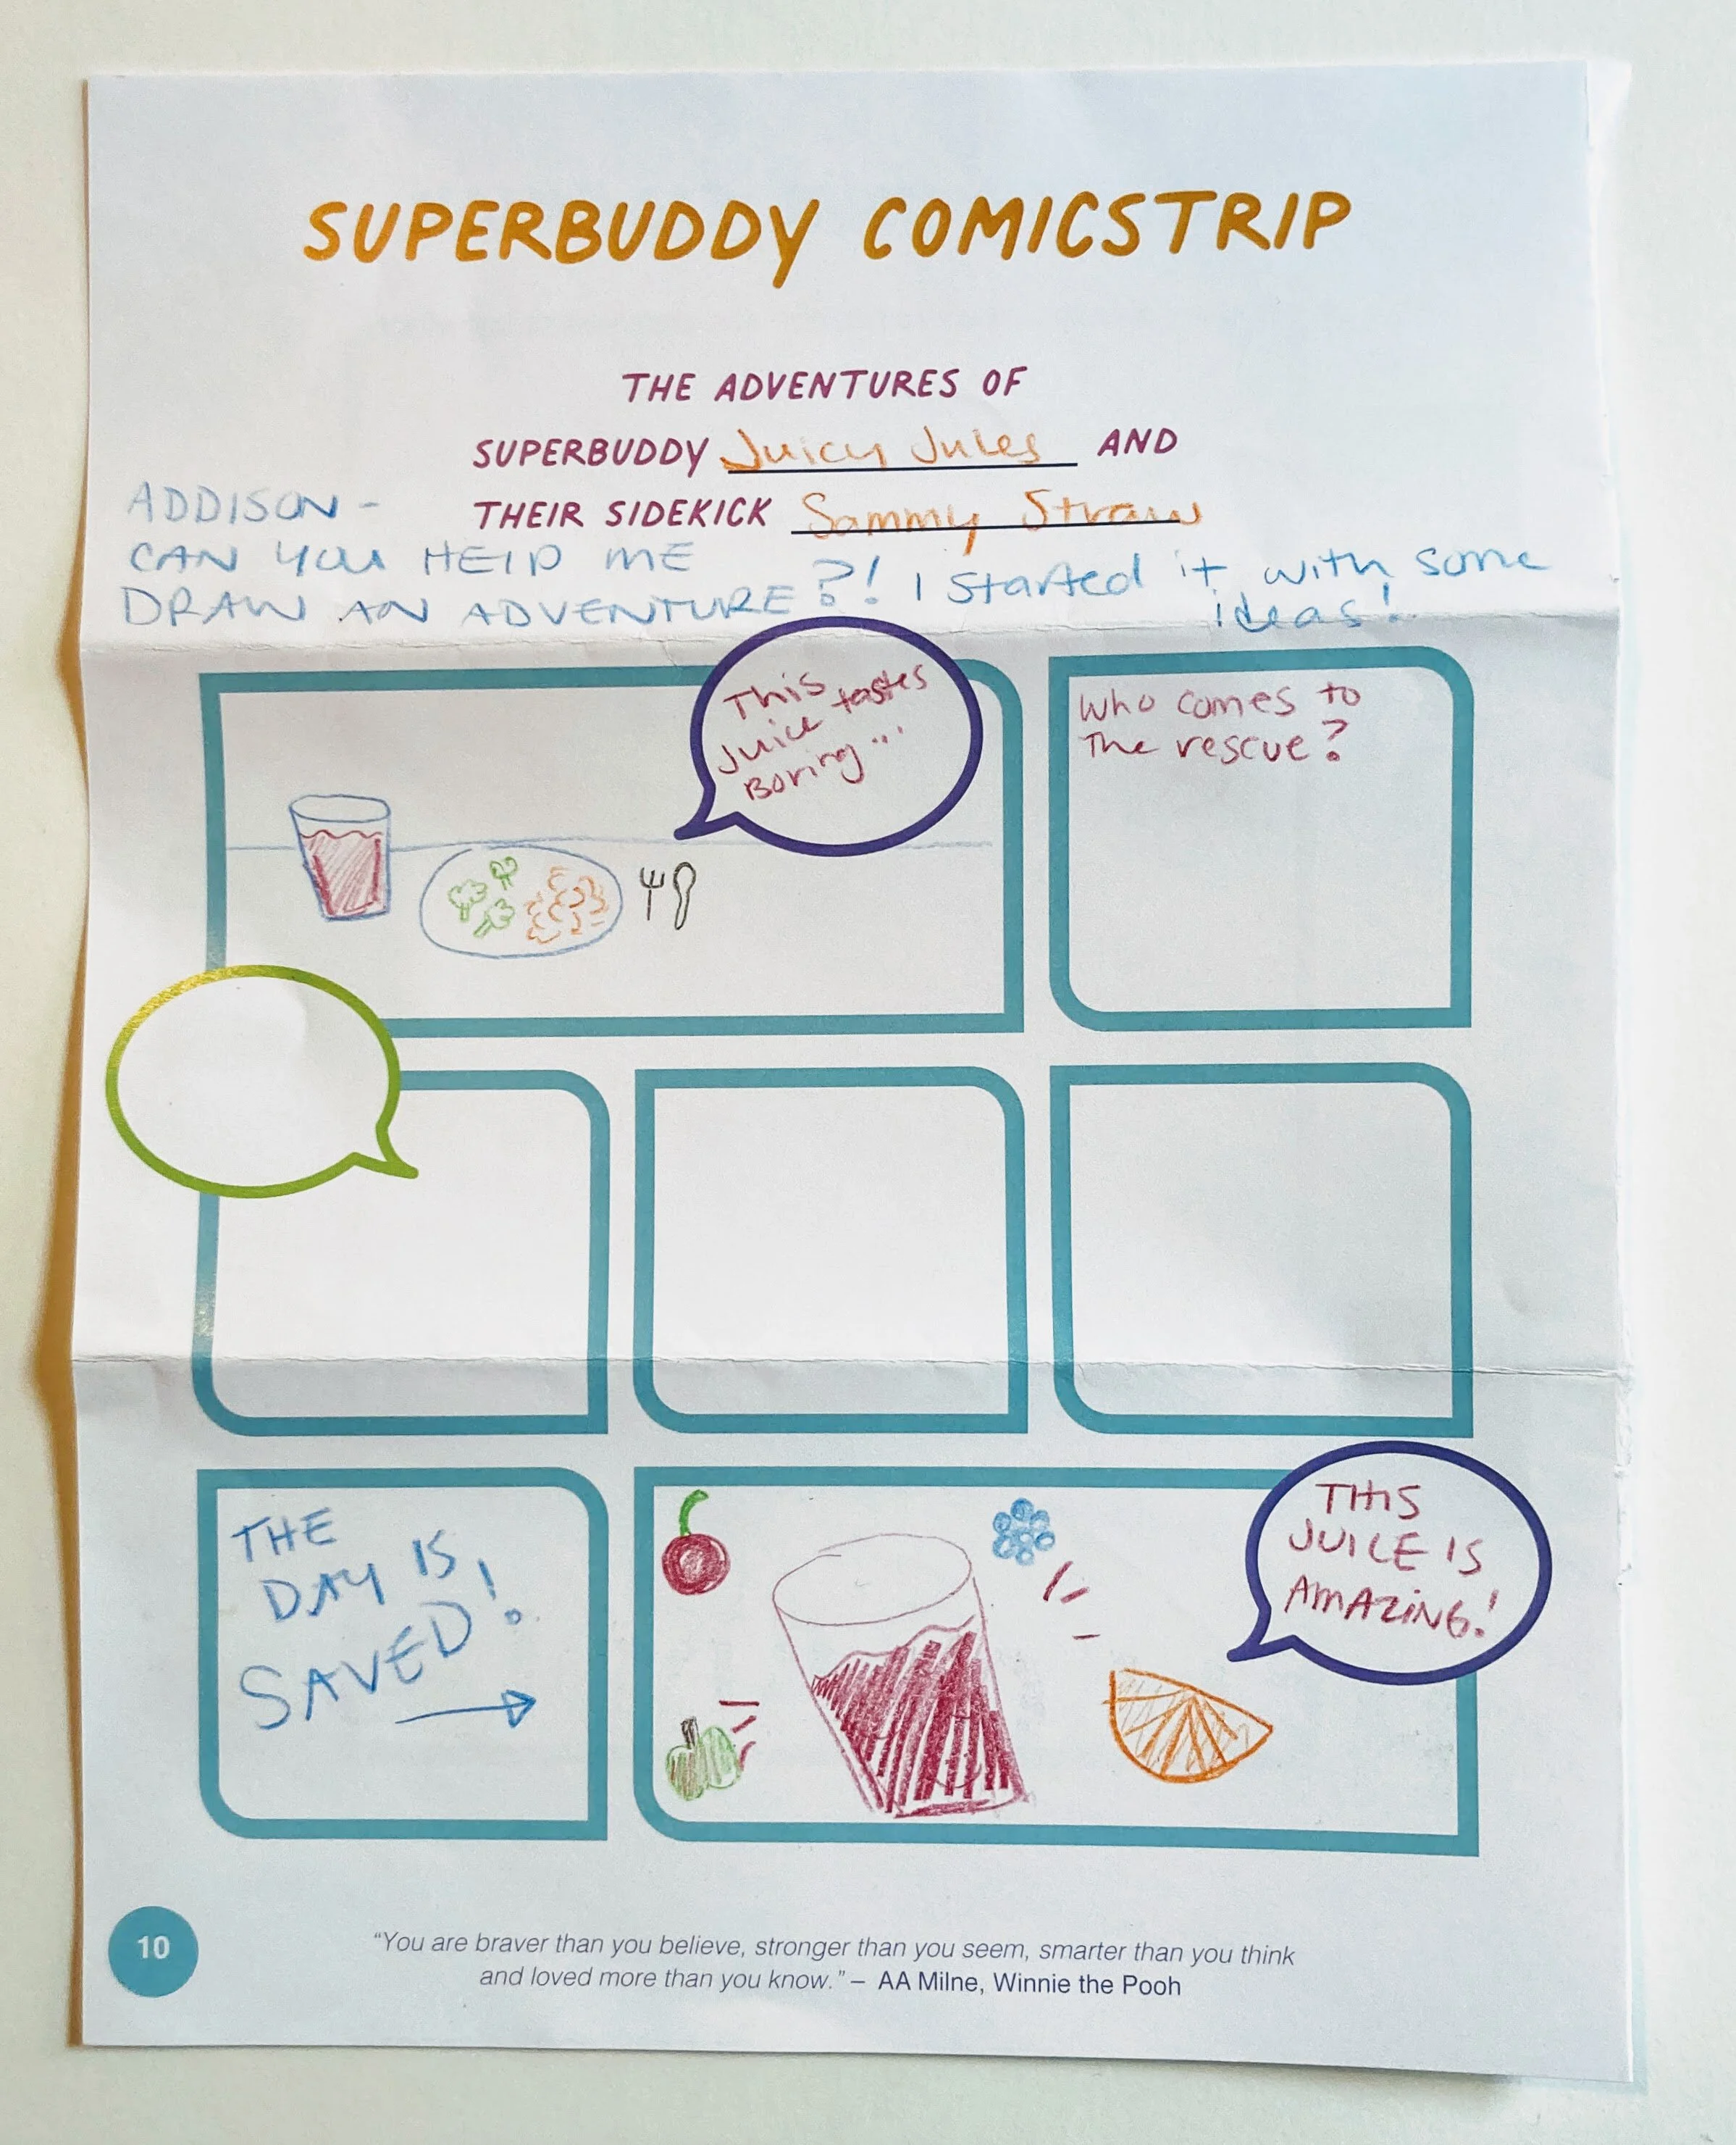 SUPERBUDDY COMICSTRIP
THE ADVENTURES OF
SUPERBUDDY Juicy Jules AND
THEIR SIDEKICK Sammy Straw
ADDISON -
CAN YOU HELP ME
DRAW AN ADVENTURE?! I started it with some
ideas!
This tastes
Juice
Boring...
Who comes to
The rescue?
THE
DAY IS
SAVED!
THIS
JUICE IS
AMAZING!
10
"You are braver than you believe, stronger than you seem, smarter than you think
and loved more than you know." – AA Milne, Winnie the Pooh